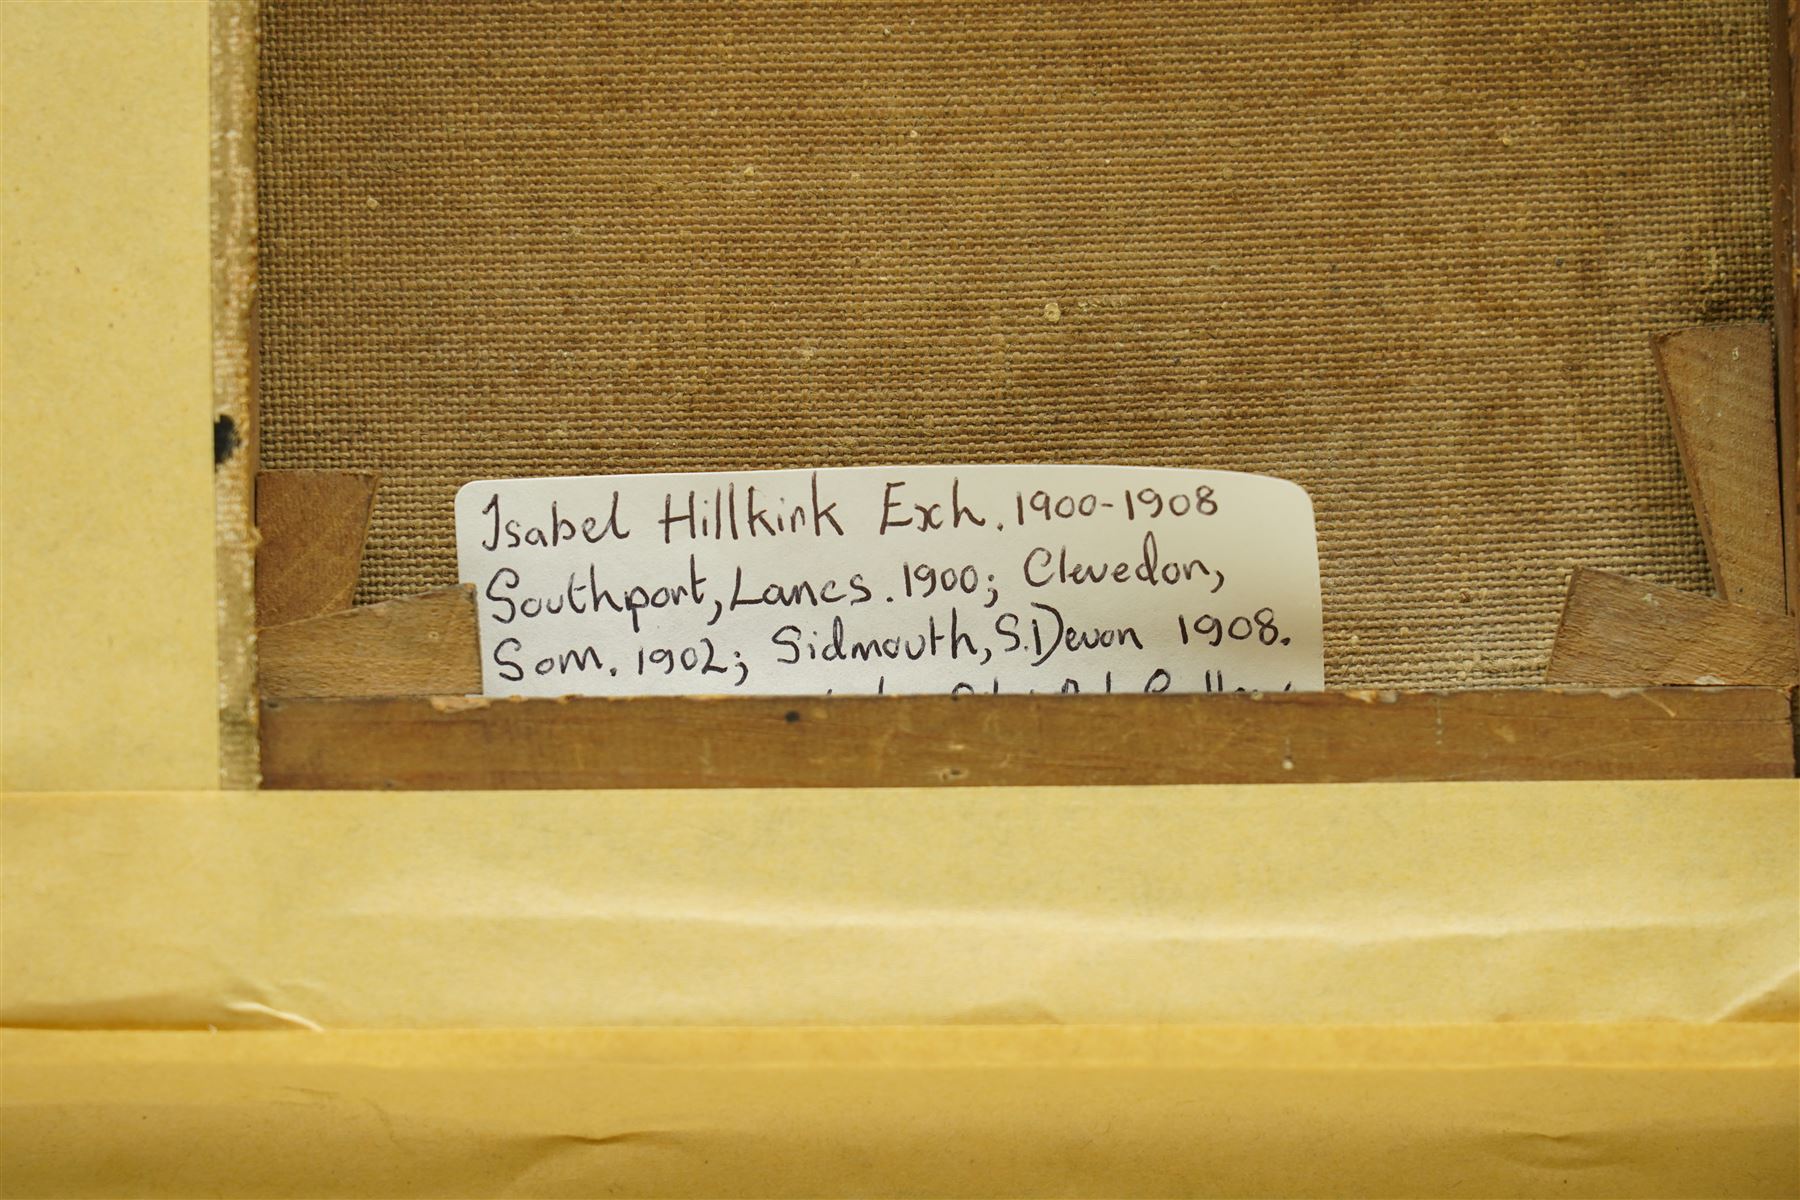 Isabel Hillkirk Exh. 1900-1908
Southport, Lancs. 1900; Clevedon,
Som. 1902; Sidmouth, S.Devon 1908.